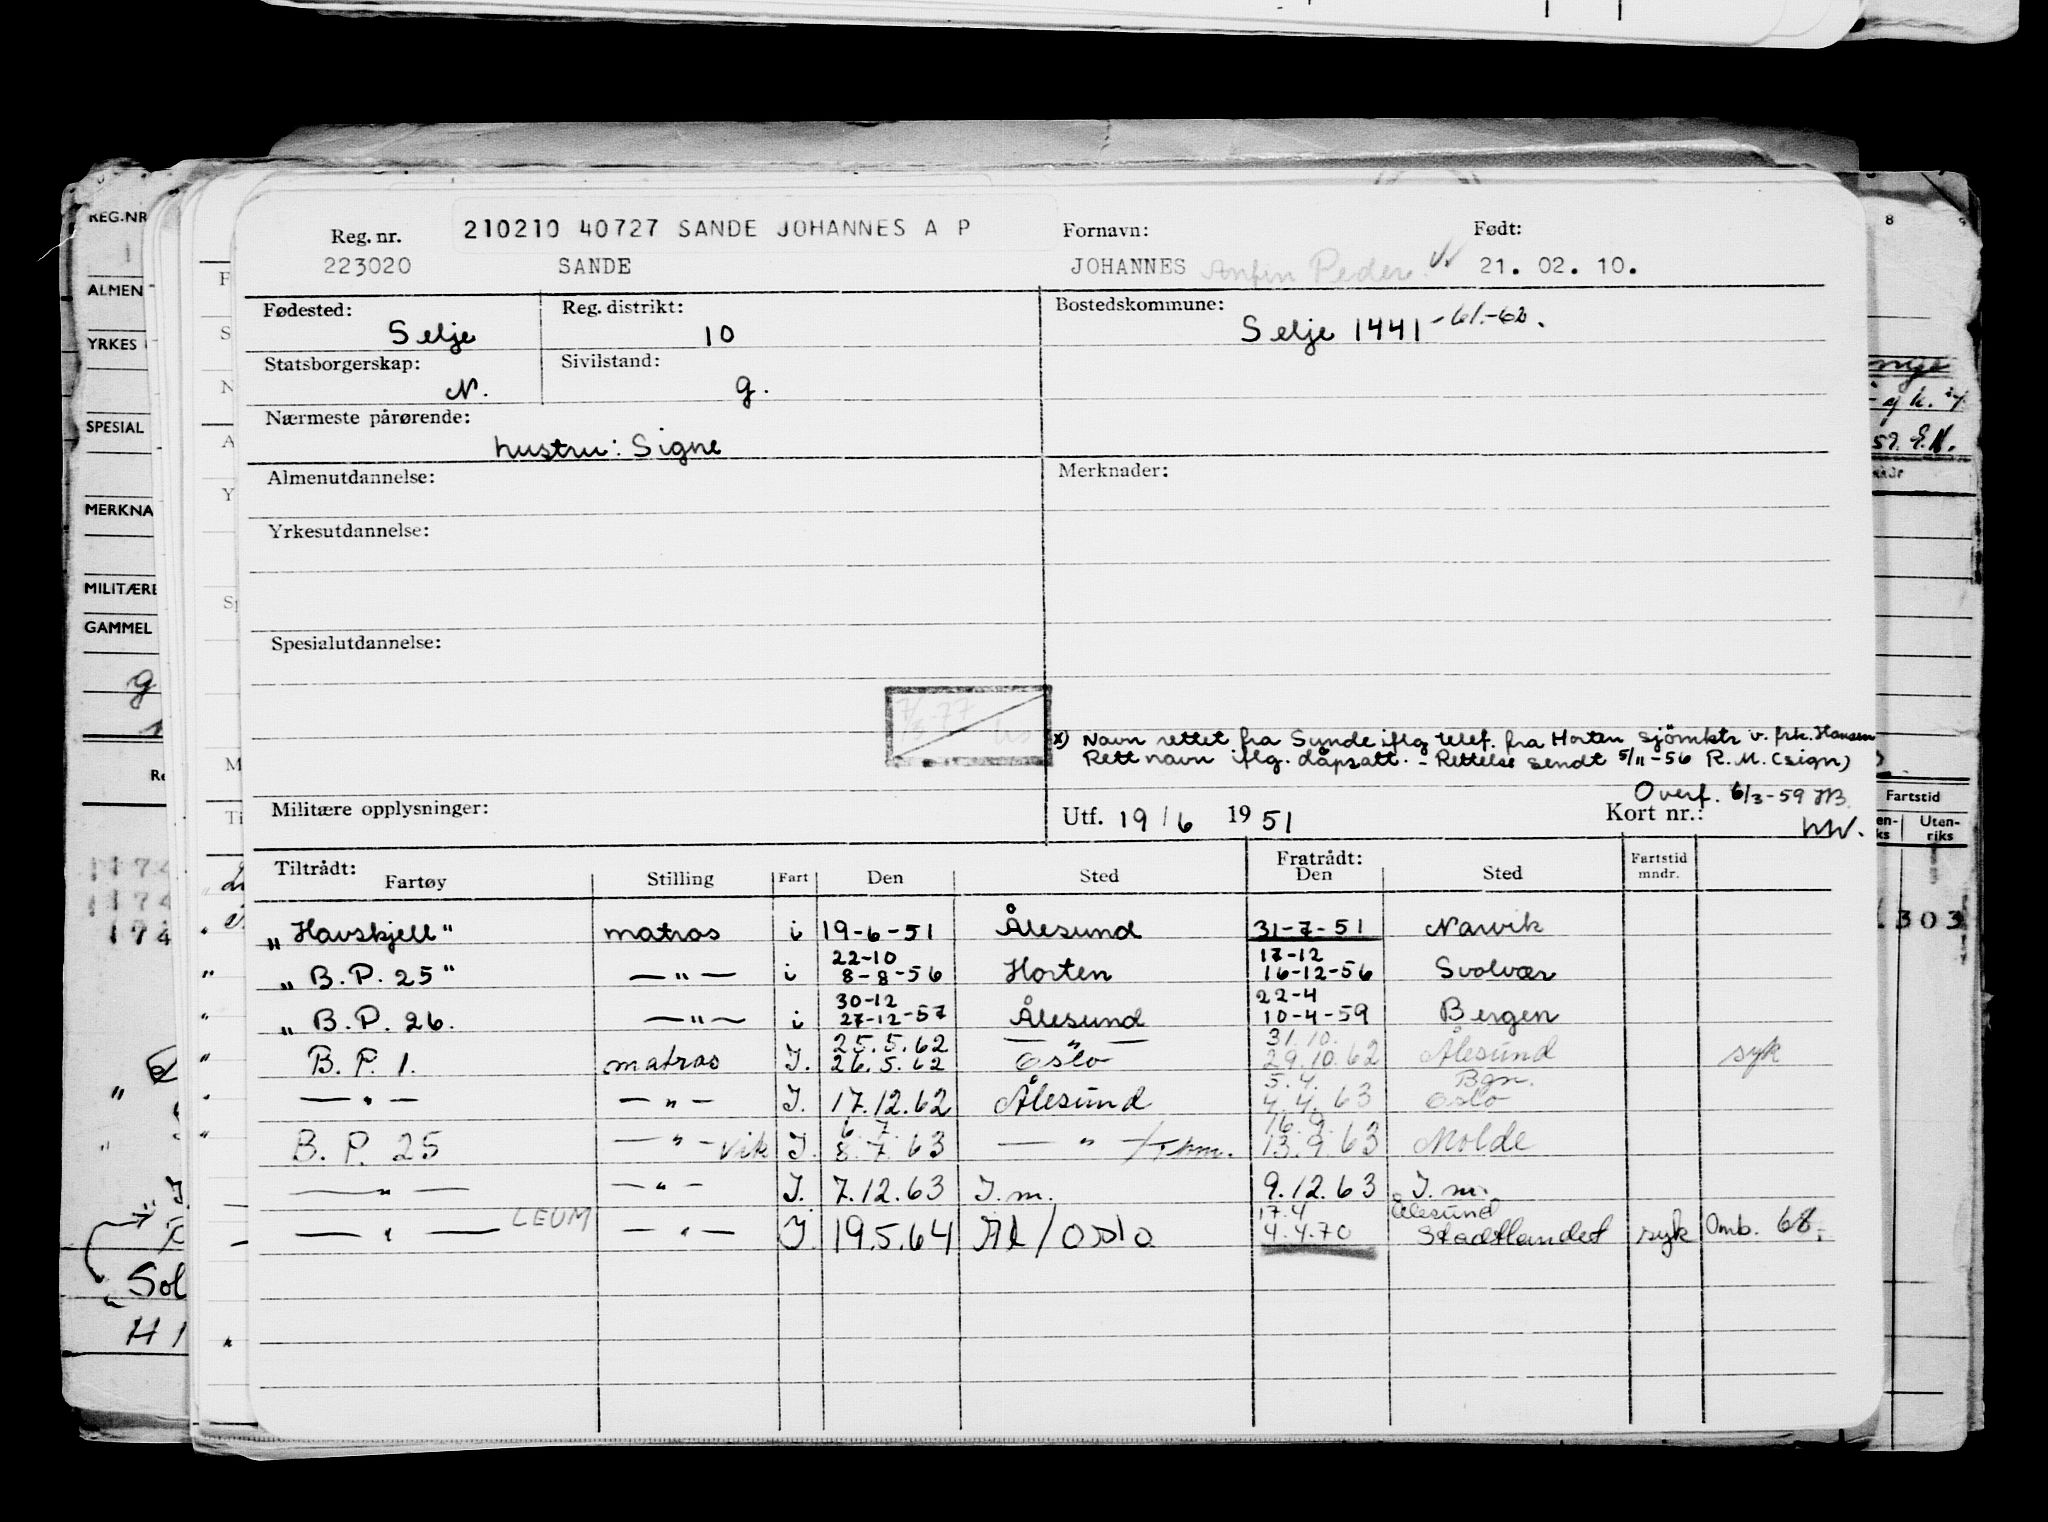 Reg. nr. 210210 40727 SANDE JOHANNES A P Fornavn: Født:
223020 SANDE JOHANNES Anfin Peder 21. 02. 10.
Fødested: Reg. distrikt: Bostedskommune:
Selje 10 Selje 1441 -61.-62.
Statsborgerskap: Sivilstand:
N. g.
Nærmeste pårørende:
hustru: Signe
Almenutdannelse: Merknader:
Yrkesutdannelse:
Spesialutdannelse:
x) Navn rettet fra Sunde iflg telef. fra Horten sjömktr v. frk. Hansen
Rett navn iflg. dåpsatt. - Rettelse sendt 5/11-56 R.M. (sign)
Overf. 6/3-59
Militære opplysninger: Utf. 19/6 1951 Kort nr.:
Tiltrådt: Fratrådt: Fartstid
Fartøy Stilling Fart Den Sted Den Sted mndr.
„Havskjell" matros i 19-6-51 Ålesund 31-7-51 Narvik
22-10 17-12
„B.P. 25" —"— i 8-8-56 Horten 16-12-56 Svolvær
30-12 22-4
„B.P. 26. —"— i 27-12-57 Ålesund 10-4-59 Bergen
25.5.62 —"— 31.10.
B.P. 1. matros I. 26.5.62 Oslo 29.10.62 Ålesund syk
5.4. Bgn.
—"— —"— I. 17.12.62 Ålesund 4.4.63 Oslo
6.7. 16.9.
B.P. 25 —"— vik I. 8.7.63 —"— /Thm. 13.9.63 Molde
—"— —"— I. 7.12.63 I.m. 9.12.63 I.m.
17.4 Ålesund
—"— LEUM —"— I. 19.5.64 Ål/Oslo 4.4.70 Stadtlandet syk Omb. 68.
REG.NR
ALMEN
YRKES
SPESIAL
MERKNA
MILITÆRE
GAMMEL
g
Sol
H
8
Fartstid
Uten-
riks
303